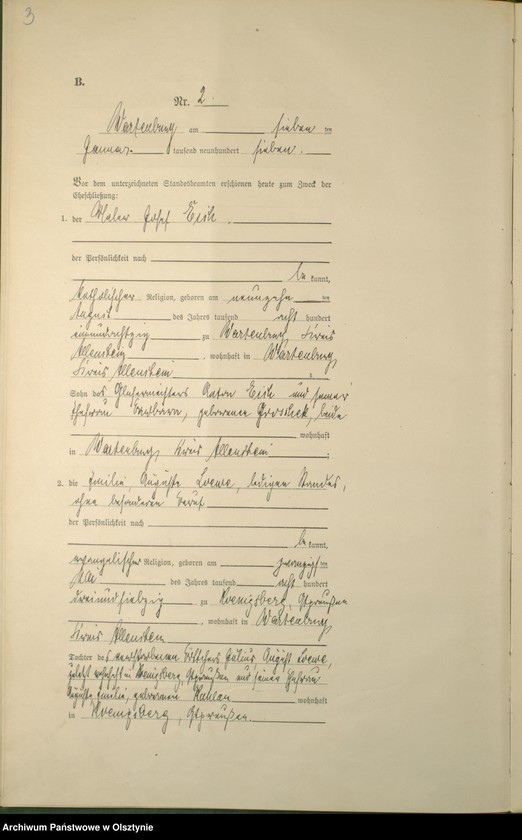 3
B.
Nr. 2.
Wartenburg am sieben ten
Januar tausend neunhundert sieben.
Vor dem unterzeichneten Standesbeamten erschienen heute zum Zweck der
Eheschließung:
1. der Maler Josef
der Persönlichkeit nach
be kannt,
katholischer Religion, geboren am neunzehn ten
August des Jahres tausend acht hundert
einundachtzig zu Wartenburg, Kreis
Allenstein, wohnhaft in Wartenburg,
Kreis Allenstein
Sohn des Glasermeisters Anton und seiner
Ehefrau Barbara, geborenen beide
wohnhaft
in Wartenburg, Kreis Allenstein.
2. die Emilie, Auguste Loewe, ledigen Standes,
ohne besonderen Beruf
der Persönlichkeit nach
be kannt,
evangelischer Religion, geboren am zwanzigsten
Mai des Jahres tausend acht hundert
dreiundsiebzig zu Koenigsberg, Ostpreußen
, wohnhaft in Wartenburg,
Kreis Allenstein
Tochter des verstorbenen Böttchers Julius, August Loewe,
zuletzt wohnhaft in Koenigsberg, Ostpreußen und seiner Ehefrau
Auguste Emilie, geborenen wohnhaft
in Koenigsberg, Ostpreußen.
Archiwum Państwowe w Olsztynie